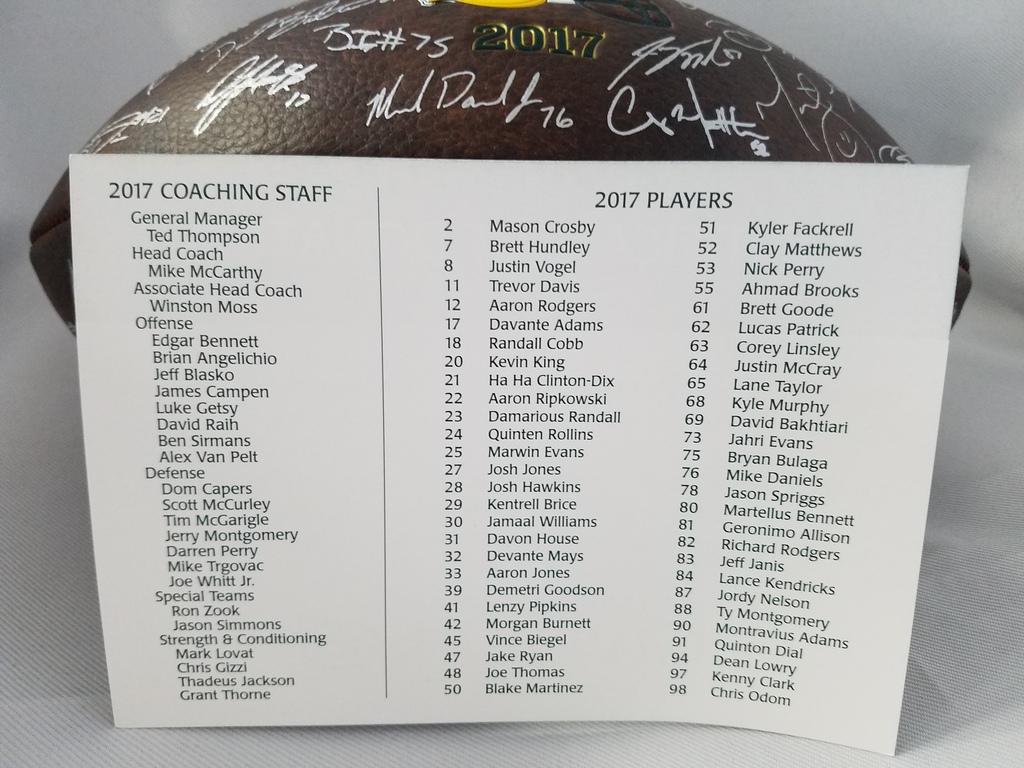 BB #75
2017
Mike Daniels 76
2017 COACHING STAFF
General Manager
Ted Thompson
Head Coach
Mike McCarthy
Associate Head Coach
Winston Moss
Offense
Edgar Bennett
Brian Angelichio
Jeff Blasko
James Campen
Luke Getsy
David Raih
Ben Sirmans
Alex Van Pelt
Defense
Dom Capers
Scott McCurley
Tim McGarigle
Jerry Montgomery
Darren Perry
Mike Trgovac
Joe Whitt Jr.
Special Teams
Ron Zook
Jason Simmons
Strength & Conditioning
Mark Lovat
Chris Gizzi
Thadeus Jackson
Grant Thorne
2017 PLAYERS
2 Mason Crosby
7 Brett Hundley
8 Justin Vogel
11 Trevor Davis
12 Aaron Rodgers
17 Davante Adams
18 Randall Cobb
20 Kevin King
21 Ha Ha Clinton-Dix
22 Aaron Ripkowski
23 Damarious Randall
24 Quinten Rollins
25 Marwin Evans
27 Josh Jones
28 Josh Hawkins
29 Kentrell Brice
30 Jamaal Williams
31 Davon House
32 Devante Mays
33 Aaron Jones
39 Demetri Goodson
41 Lenzy Pipkins
42 Morgan Burnett
45 Vince Biegel
47 Jake Ryan
48 Joe Thomas
50 Blake Martinez
51 Kyler Fackrell
52 Clay Matthews
53 Nick Perry
55 Ahmad Brooks
61 Brett Goode
62 Lucas Patrick
63 Corey Linsley
64 Justin McCray
65 Lane Taylor
68 Kyle Murphy
69 David Bakhtiari
73 Jahri Evans
75 Bryan Bulaga
76 Mike Daniels
78 Jason Spriggs
80 Martellus Bennett
81 Geronimo Allison
82 Richard Rodgers
83 Jeff Janis
84 Lance Kendricks
87 Jordy Nelson
88 Ty Montgomery
90 Montravius Adams
91 Quinton Dial
94 Dean Lowry
97 Kenny Clark
98 Chris Odom